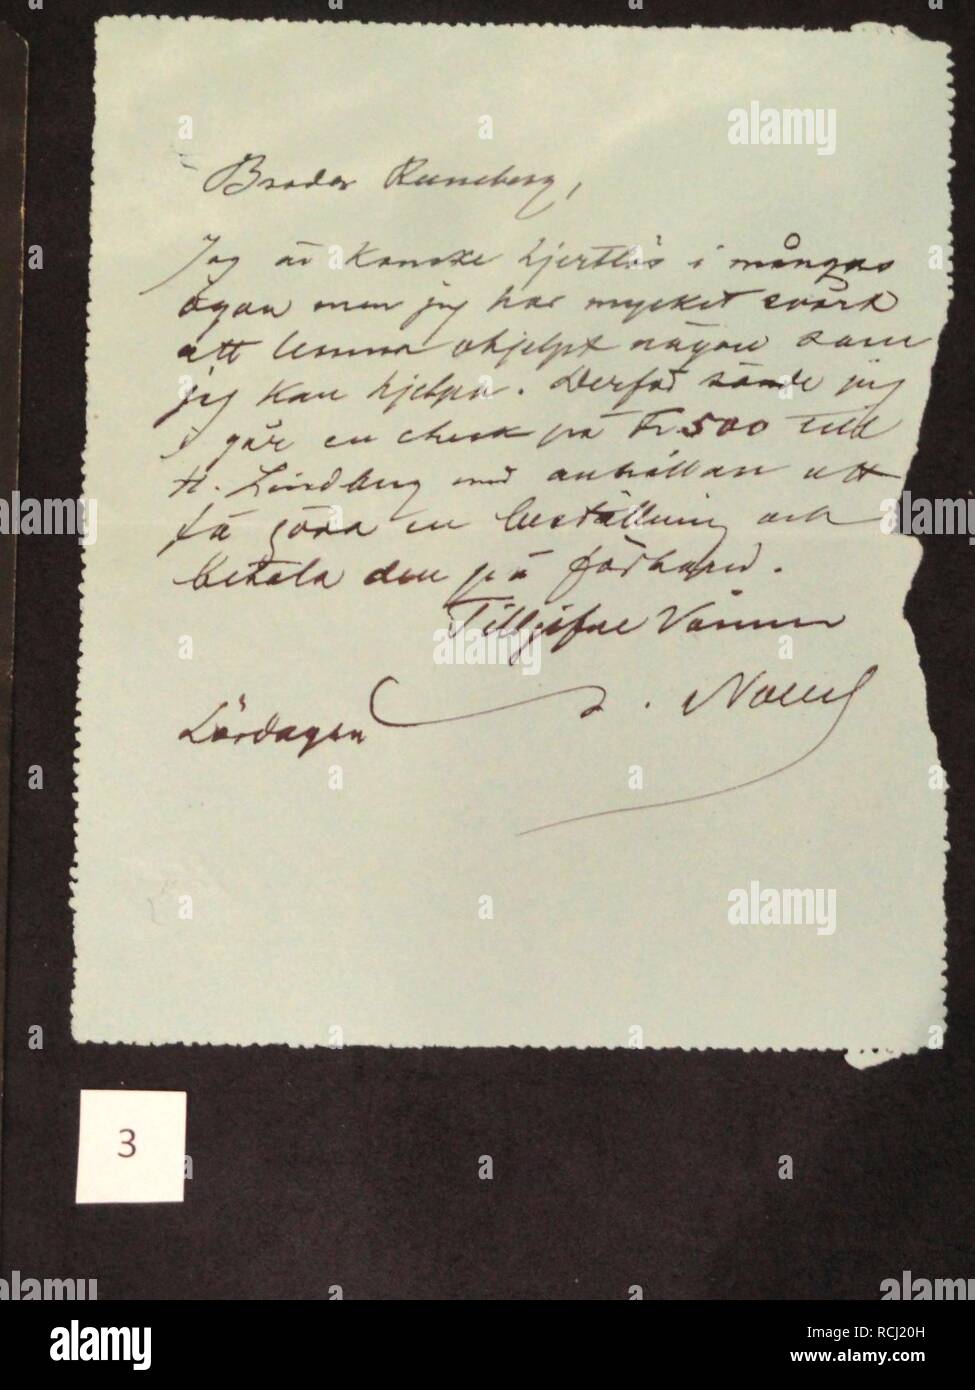 Broder Runeberg,
Jag är kanske hjertlös i mångas
ögon men jag har mycket svårt
att lemna ohjelpt någon som
jag kan hjelpa. Derför sände jag
i går en check på Fr 500 till
H. Lindberg med anhållan att
få göra en beställning och
betala den på förhand.
Tillgifne Vännen
Nobel
Lördagen
3
alamy
alamy stock photo
Image ID: RCJ20H
www.alamy.com